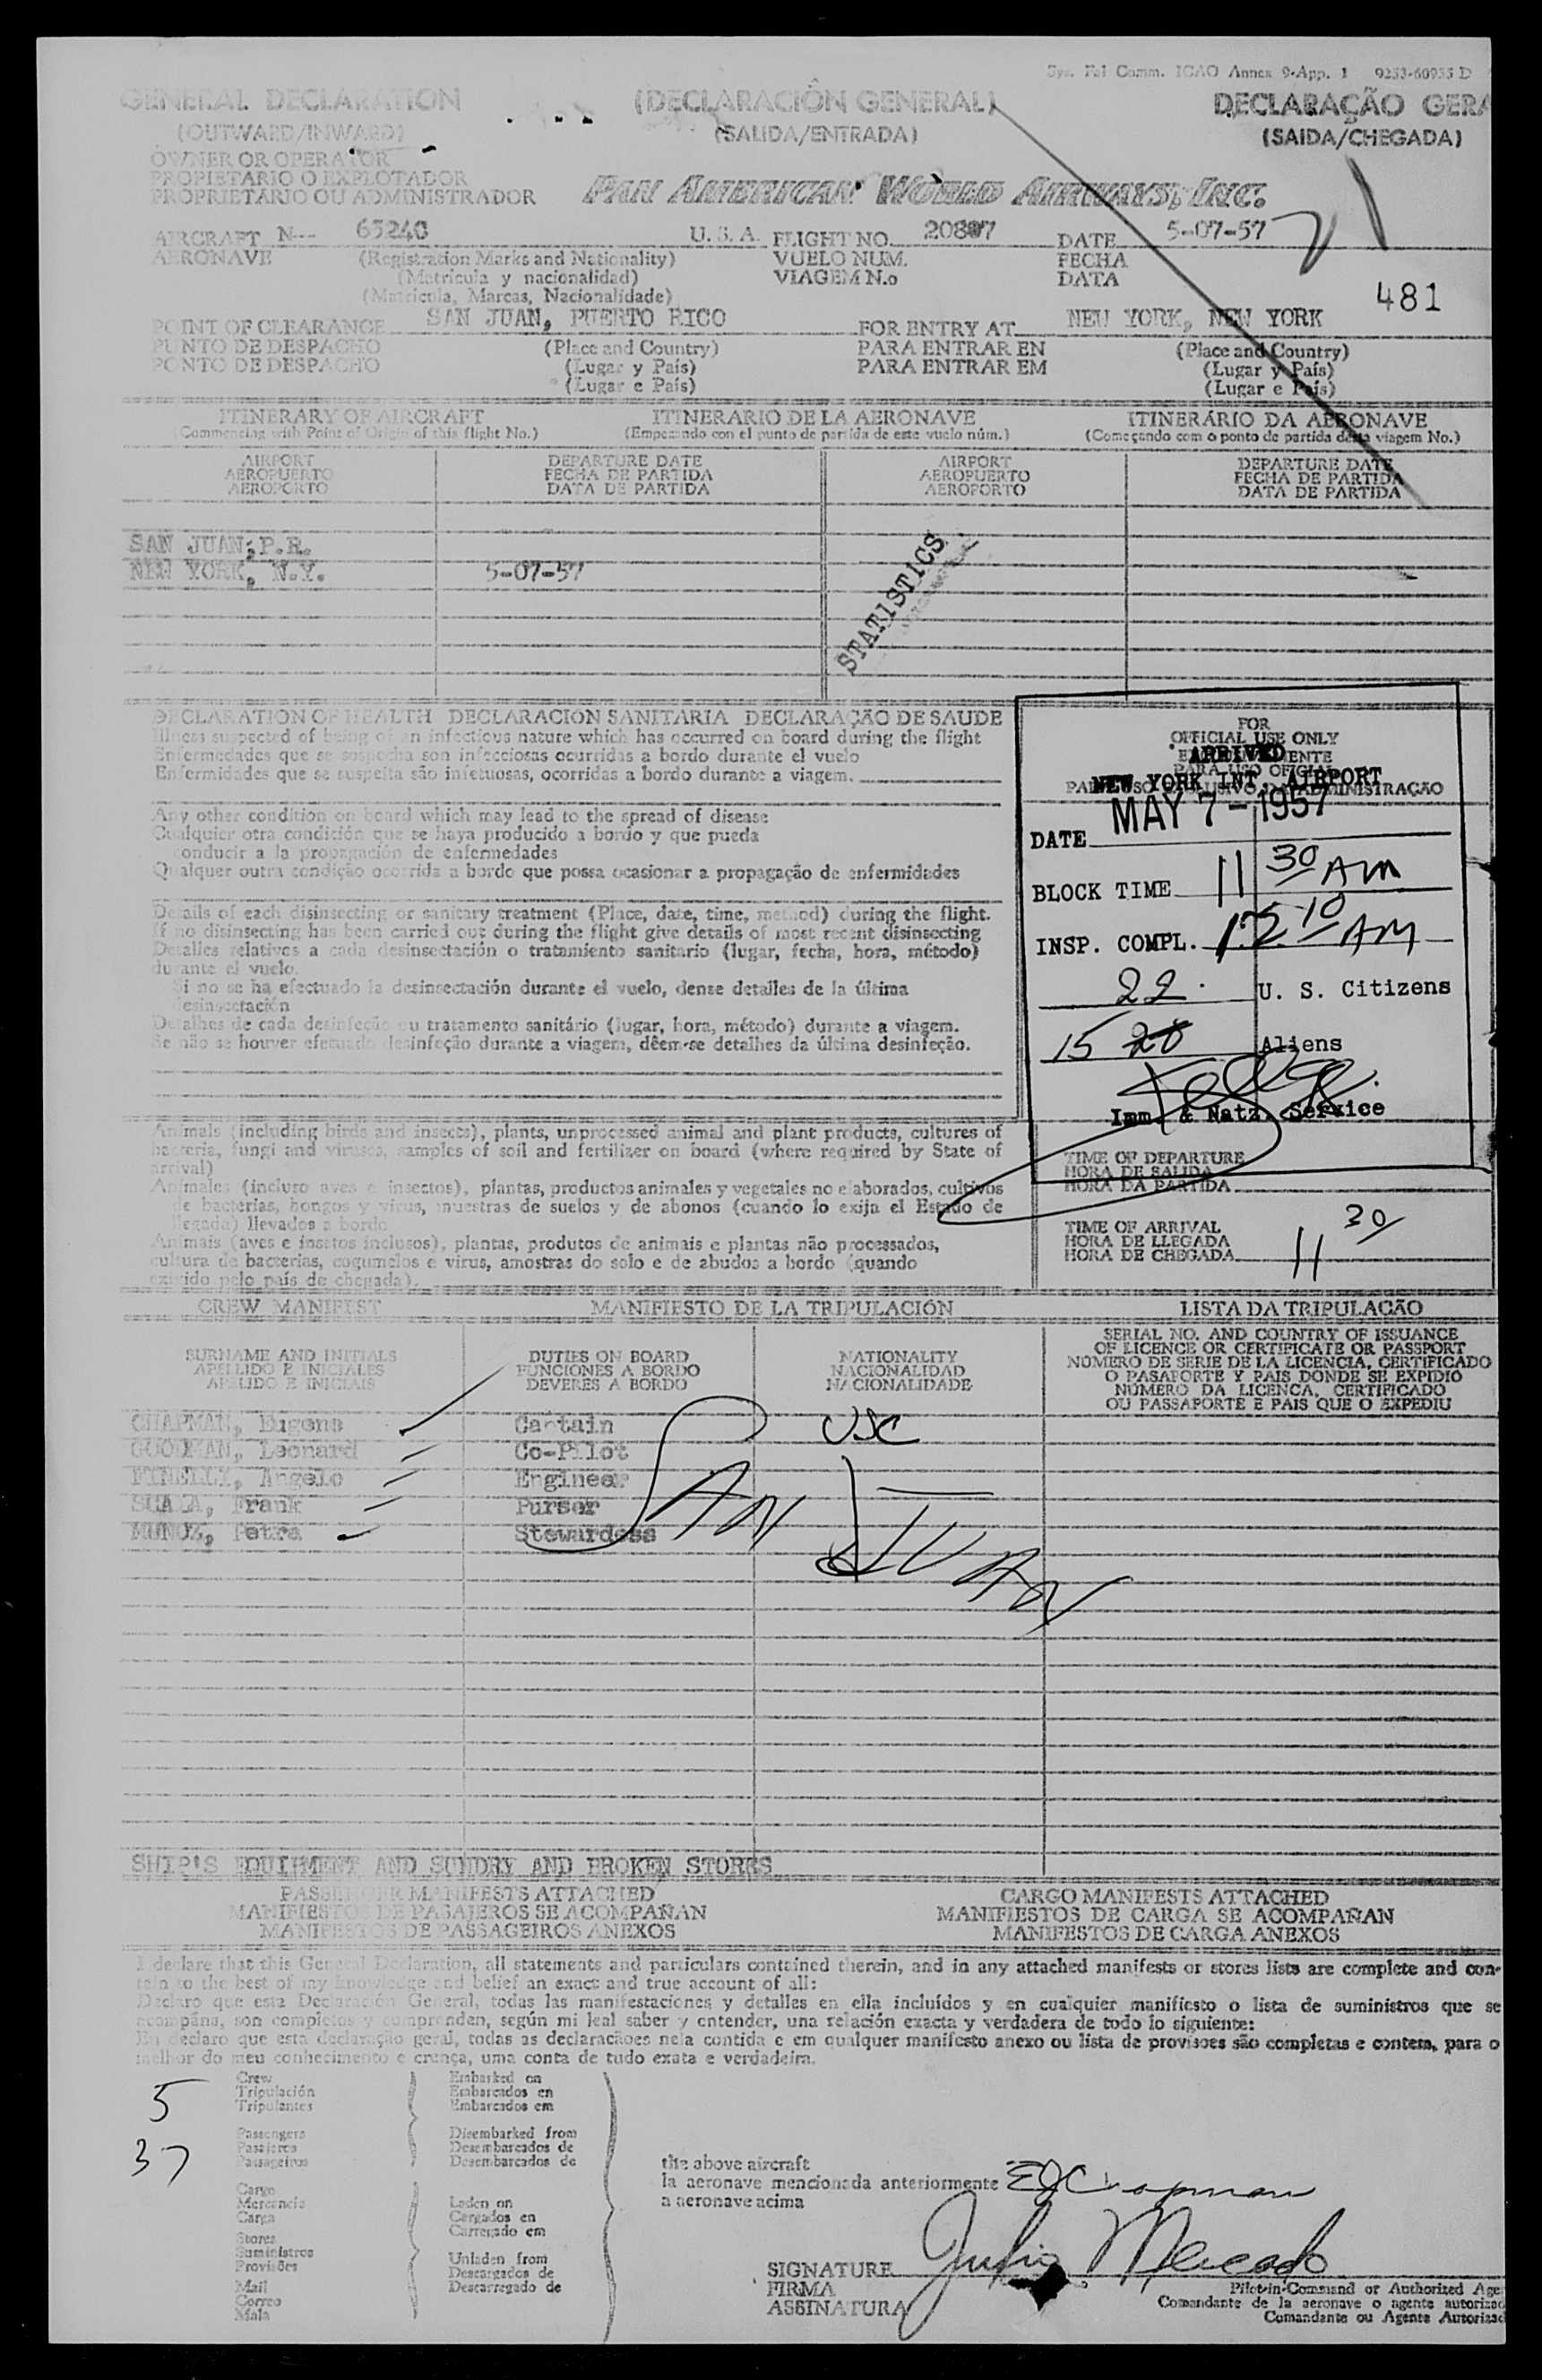 Sys. Fal Comm. ICAO Annex 9-App. 1 9253-60955 D
GENERAL DECLARATION (DECLARACIÓN GENERAL) DECLARAÇÃO GERA
(OUTWARD/INWARD) (SALIDA/ENTRADA) (SAIDA/CHEGADA)
OWNER OR OPERATOR
PROPIETARIO O EXPLOTADOR
PROPRIETÁRIO OU ADMINISTRADOR PAN AMERICAN WORLD AIRWAYS, INC.
AIRCRAFT N-- 65240 U.S.A. FLIGHT NO. 20897 DATE 5-07-57
AERONAVE (Registration Marks and Nationality) VUELO NUM. FECHA
(Matricula y nacionalidad) VIAGEM N.o DATA
(Matricula, Marcas, Nacionalidade) 481
POINT OF CLEARANCE SAN JUAN, PUERTO RICO FOR ENTRY AT NEW YORK, NEW YORK
PUNTO DE DESPACHO (Place and Country) PARA ENTRAR EN (Place and Country)
PONTO DE DESPACHO (Lugar y País) PARA ENTRAR EM (Lugar y País)
(Lugar e País) (Lugar e País)
ITINERARY OF AIRCRAFT ITINERARIO DE LA AERONAVE ITINERÁRIO DA AERONAVE
(Commencing with Point of Origin of this flight No.) (Empezando con el punto de partida de este vuelo núm.) (Começando com o ponto de partida desta viagem No.)
AIRPORT DEPARTURE DATE AIRPORT DEPARTURE DATE
AEROPUERTO FECHA DE PARTIDA AEROPUERTO FECHA DE PARTIDA
AEROPORTO DATA DE PARTIDA AEROPORTO DATA DE PARTIDA
SAN JUAN, P.R.
NEW YORK, N.Y. 5-07-57
STATISTICS
DECLARATION OF HEALTH DECLARACIÓN SANITARIA DECLARAÇÃO DE SAUDE
Illness suspected of being of an infectious nature which has occurred on board during the flight
Enfermedades que se sospecha son infecciosas ocurridas a bordo durante el vuelo
Enfermidades que se suspeita são infetuosas, ocorridas a bordo durante a viagem.
Any other condition on board which may lead to the spread of disease
Cualquier otra condición que se haya producido a bordo y que pueda
conducir a la propagación de enfermedades
Qualquer outra condição ocorrida a bordo que possa ocasionar a propagação de enfermidades
Details of each disinsecting or sanitary treatment (Place, date, time, method) during the flight.
If no disinsecting has been carried out during the flight give details of most recent disinsecting
Detalles relativos a cada desinsectación o tratamiento sanitario (lugar, fecha, hora, método)
durante el vuelo.
Si no se ha efectuado la desinsectación durante el vuelo, dense detalles de la última
desinsectación
Detalhes de cada desinfeção ou tratamento sanitário (lugar, hora, método) durante a viagem.
Se não se houver efetuado desinfeção durante a viagem, dêem-se detalhes da última desinfeção.
FOR
OFFICIAL USE ONLY
ARRIVED
PARA USO OFICIAL
NEW YORK INT. AIRPORT
DATE MAY 7 - 1957
BLOCK TIME 11 30 AM
INSP. COMPL. 12 10 AM
22 U. S. Citizens
15 20 Aliens
Imm. & Natz. Service
Animals (including birds and insects), plants, unprocessed animal and plant products, cultures of
bacteria, fungi and viruses, samples of soil and fertilizer on board (where required by State of
arrival)
Animales (incluso aves e insectos), plantas, productos animales y vegetales no elaborados, cultivos
de bacterias, hongos y virus, muestras de suelos y de abonos (cuando lo exija el Estado de
llegada) llevados a bordo
Animais (aves e insetos inclusos), plantas, produtos de animais e plantas não processados,
cultura de bacterias, cogumelos e virus, amostras do solo e de abudos a bordo (quando
exigido pelo país de chegada).
TIME OF DEPARTURE
HORA DE SALIDA
HORA DA PARTIDA
TIME OF ARRIVAL
HORA DE LLEGADA
HORA DE CHEGADA 11 30
CREW MANIFEST MANIFIESTO DE LA TRIPULACIÓN LISTA DA TRIPULAÇÃO
SURNAME AND INITIALS DUTIES ON BOARD NATIONALITY
APELLIDO E INICIALES FUNCIONES A BORDO NACIONALIDAD
APELIDO E INICIAIS DEVERES A BORDO NACIONALIDADE
SERIAL NO. AND COUNTRY OF ISSUANCE
OF LICENCE OR CERTIFICATE OR PASSPORT
NÚMERO DE SERIE DE LA LICENCIA, CERTIFICADO
O PASAPORTE Y PAIS DONDE SE EXPIDIÓ
NÚMERO DA LICENCA, CERTIFICADO
OU PASSAPORTE E PAIS QUE O EXPEDIU
CHAPMAN, Eugene Captain USC
GOODMAN, Leonard Co-Pilot
FINELLI, Angelo Engineer
Frank Purser
MUNOZ, Petra Stewardess
SAN JUAN
SHIP'S EQUIPMENT AND SUNDRY AND BROKEN STORES
PASSENGER MANIFESTS ATTACHED CARGO MANIFESTS ATTACHED
MANIFIESTOS DE PASAJEROS SE ACOMPAÑAN MANIFIESTOS DE CARGA SE ACOMPAÑAN
MANIFESTOS DE PASSAGEIROS ANEXOS MANIFESTOS DE CARGA ANEXOS
I declare that this General Declaration, all statements and particulars contained therein, and in any attached manifests or stores lists are complete and con-
tain to the best of my knowledge and belief an exact and true account of all:
Declaro que esta Declaración General, todas las manifestaciones y detalles en ella incluídos y en cualquier manifiesto o lista de suministros que se
acompaña, son completos y comprenden, según mi leal saber y entender, una relación exacta y verdadera de todo lo siguiente:
Eu declaro que esta declaração geral, todas as declaracãoes nela contida e em qualquer manifesto anexo ou lista de provisoes são completas e contem, para o
melhor do meu conhecimento e crença, uma conta de tudo exata e verdadeira.
5 Crew Embarked on
Tripulación Embarcados en
Tripulantes Embarcados em
37 Passengers Disembarked from
Pasajeros Desembarcados de
Passageiros Desembarcados de
the above aircraft
la aeronave mencionada anteriormente EJ Chapman
a aeronave acima
Cargo
Mercancia Laden on
Carga Cargados en
Carregado em
Stores
Suministros
Provisões Unladen from
Descargados de
Mail Descarregado de
Correo
Mala
SIGNATURE Julio Mercado
FIRMA
ASSINATURA
Pilot-in-Command or Authorized Age
Comandante de la aeronave o agente autorizad
Comandante ou Agente Autorizad